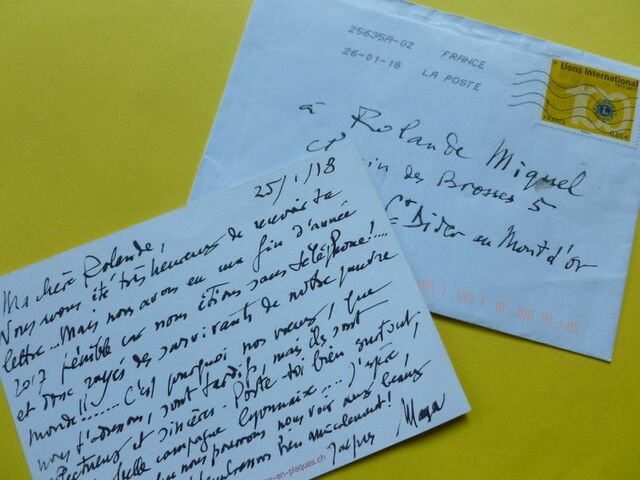 25635A-02 FRANCE
26-01-18 LA POSTE
Lions International
1917-2017
FRANCE
0,85€
à Rolande Miquel
des Brosses 5
St Didier au Mont d'or
25/1/18
Ma chère Rolande,
Nous avons été très heureux de recevoir ta
lettre... Mais nous avons eu une fin d'année
2017 pénible car nous étions sans téléphone!....
et donc rayés des survivants de notre pauvre
monde!! ....... C'est pourquoi nos vœux, que
nous t'adressons, sont tardifs, mais ils sont
et sincères. Porte toi bien surtout,
belle campagne lyonnaise.... J'espère,
que nous pourrons nous voir aux beaux
bien amicalement!
Jacques Maya
-en-plaques.ch